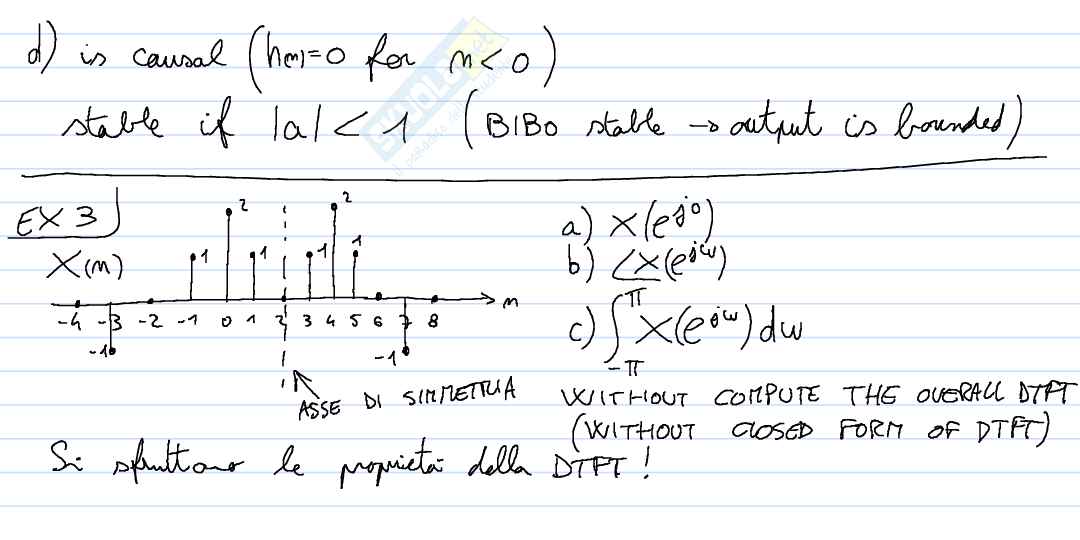 d) is causal (h(n)=0 for n<0)
stable if |a| < 1 (BIBO stable → output is bounded)
EX 3
X(n)
2 2
1 1 1 1
-4 -3 -2 -1 0 1 2 3 4 5 6 7 8 n
-1 -1
ASSE DI SIMMETRIA
a) X(e^{j0})
b) ∠X(e^{jω})
c) ∫_{-π}^{π} X(e^{jω}) dω
WITHOUT COMPUTE THE OVERALL DTFT
(WITHOUT CLOSED FORM OF DTFT)
Si sfruttano le proprietà della DTFT!